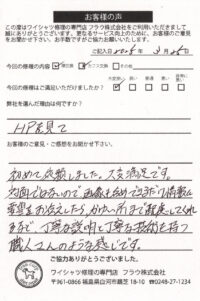 お客様の声
この度はワイシャツ修理の専門店 フラウ株式会社をご利用いただきまして
誠にありがとうございます。更なるサービス向上のために、お客様のご意見
をお聞かせ下さい。お手数ですがご協力お願いいたします。
ご記入日 2025年3月25日
今回の修理の内容 カフス交換 その他
今回の修理はご満足いただけましたか?
不満 普通 満足
弊社を選んだ理由は何ですか?
HPを見て
お客様のご意見・ご感想をお聞かせ下さい。
初めて依頼しました。大変満足です。
対面ではないので
要望をお伝えしたら、 まで してくれ
丁寧な説明と丁寧な技術を持つ
職人さんのような感じです。
ご協力ありがとうございました。
ワイシャツ修理の専門店 フラウ株式会社
〒961-0866 福島県白河市 18-10 ☎0248-27-1234